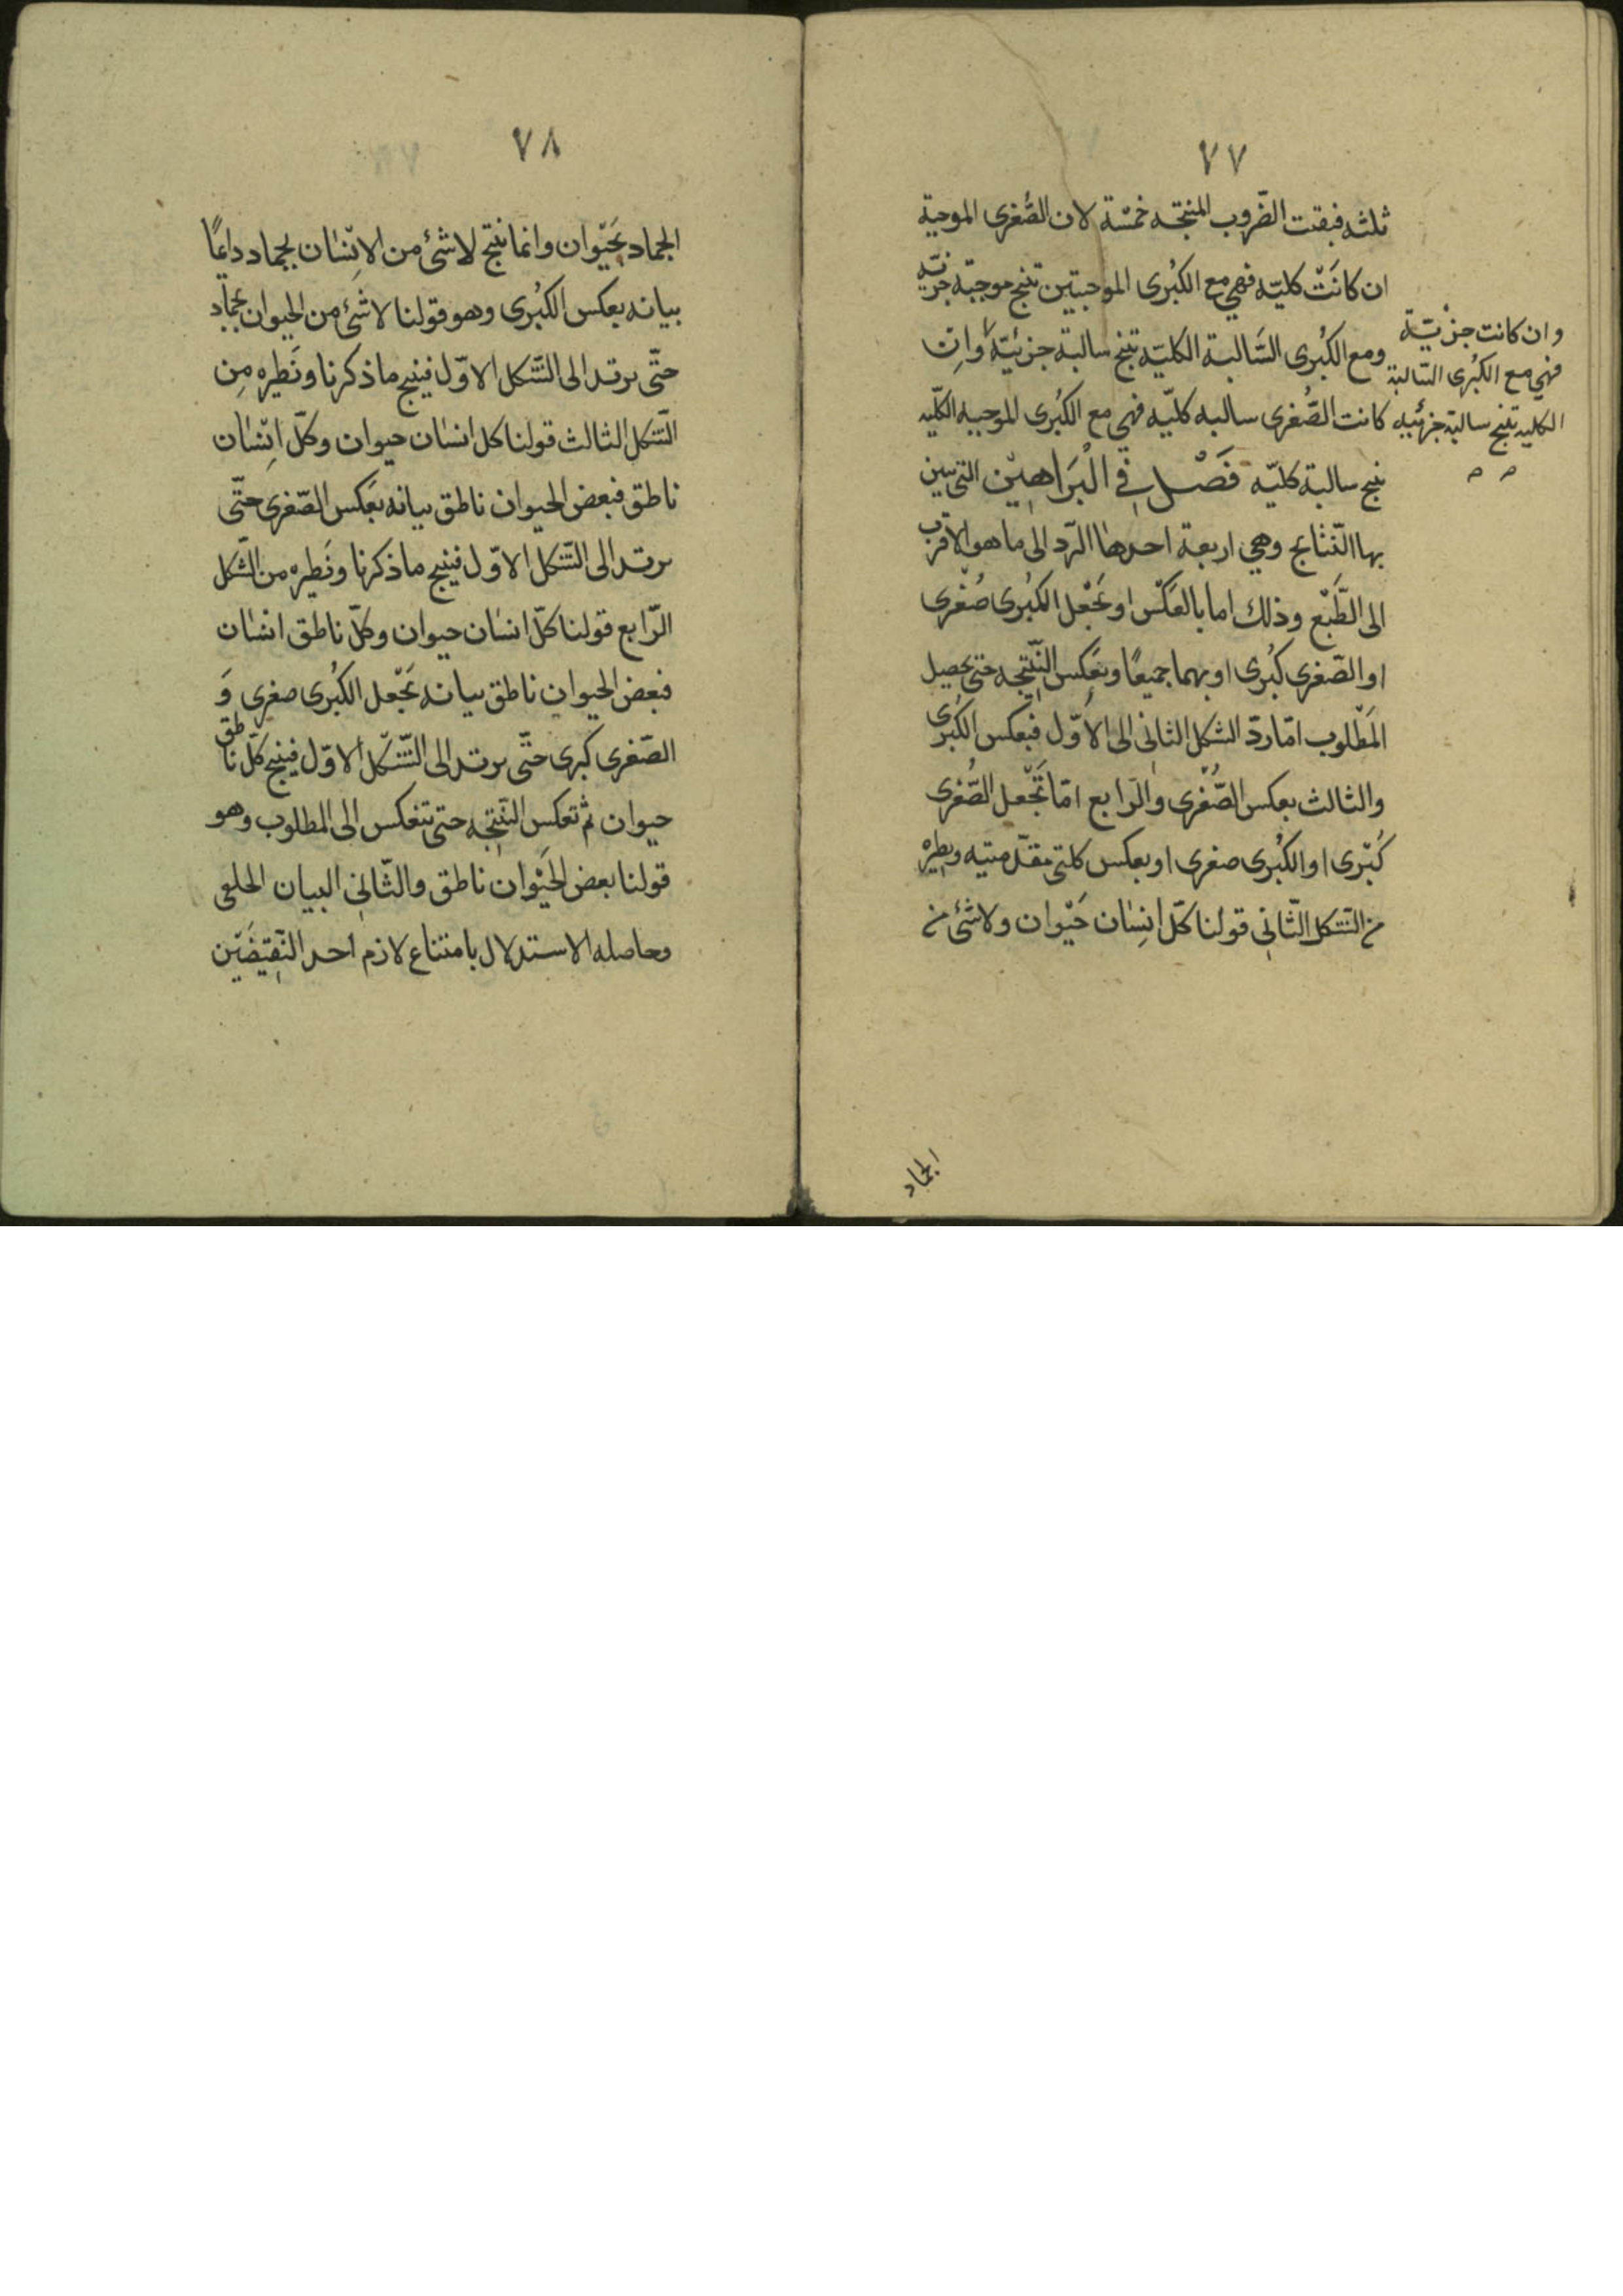 ٧٧
ثلثه فبقت الضّروب المنتجه خمْسَة لان الصُّغرى الموجبة
ان كانَتْ كليّه فهي مع الكبْرى الموجبتين تنتج موجبَة جزئيّه
ومع الكبُرى السَّالبة الكليّه تنتج سالبة جزئيّة وان
وان كانت جزئيّة
فهي مع الكبُرى السّالبة
الكليه تنتج سالبة جزئيه
كانت الصُّغرى سالبه كليّه فهي مع الكبُرى الموجبه الكلّيه
تنتج سالبة كليّه فَصْل فِي الْبَرَاهِيْن التي يبين
بها النّتايج وهي اربعة احدها الرّد الى ما هو الاقرب
الى الطَّبْع وذلك اما بالعَكْس او بَجْعل الكبُرى صُغْرى
او الصّغرى كبُرى او بهما جميعًا وبعَكس النَّتِيجه حتى يحصل
المَطْلوب امّا ردّ الشكل الثانى الى الاوّل فبعكس الكبُرى
والثالث بعكس الصُّغْرى والرّابع امّا بَجْعل الصُّغرى
كُبْرى او الكبُرى صغرى او بعكس كلتى مقدّمتيه ونظيره
من الشّكل الثّانِي قولنا كلّ انِسْان حَيْوان ولا شئ من
الجماد
٧٨
الجماد بحَيْوان وانما ينتج لا شئ من الانْسٰان بجماد دايمًا
بيانه بعكس الكبُرى وهو قولنا لا شئ من الحيوان بجمٰاد
حتّى يرتد الى الشّكل الاوّل فينتج ما ذكرنا ونَظيره مِن
الشّكل الثالث قولنا كل انسٰان حيوان وكلّ انْسٰان
ناطق فبعض الحيوان ناطق بيانه بعَكس الصّغرى حتّى
يرتد الى الشّكل الاوّل فينتج ما ذكرنا ونَظيره من الشّكل
الرّابع قولنا كلّ انسٰان حيوان وكلّ ناطق انسٰان
فبعض الحيوان ناطق بيانه بَجْعل الكبُرى صغرى وَ
الصّغرى كبرى حتّى يرتد الى الشّكل الاوّل فينتج كلّ ناطق
حيوان ثم تعكس النّتِيجه حتى تنعكس الى المطلوب وهو
قولنا بعض الحَيْوان ناطق والثّانِي البيان الخلفى
وحاصله الاستدلال بامتناع لازم احد النّقيضَيْن